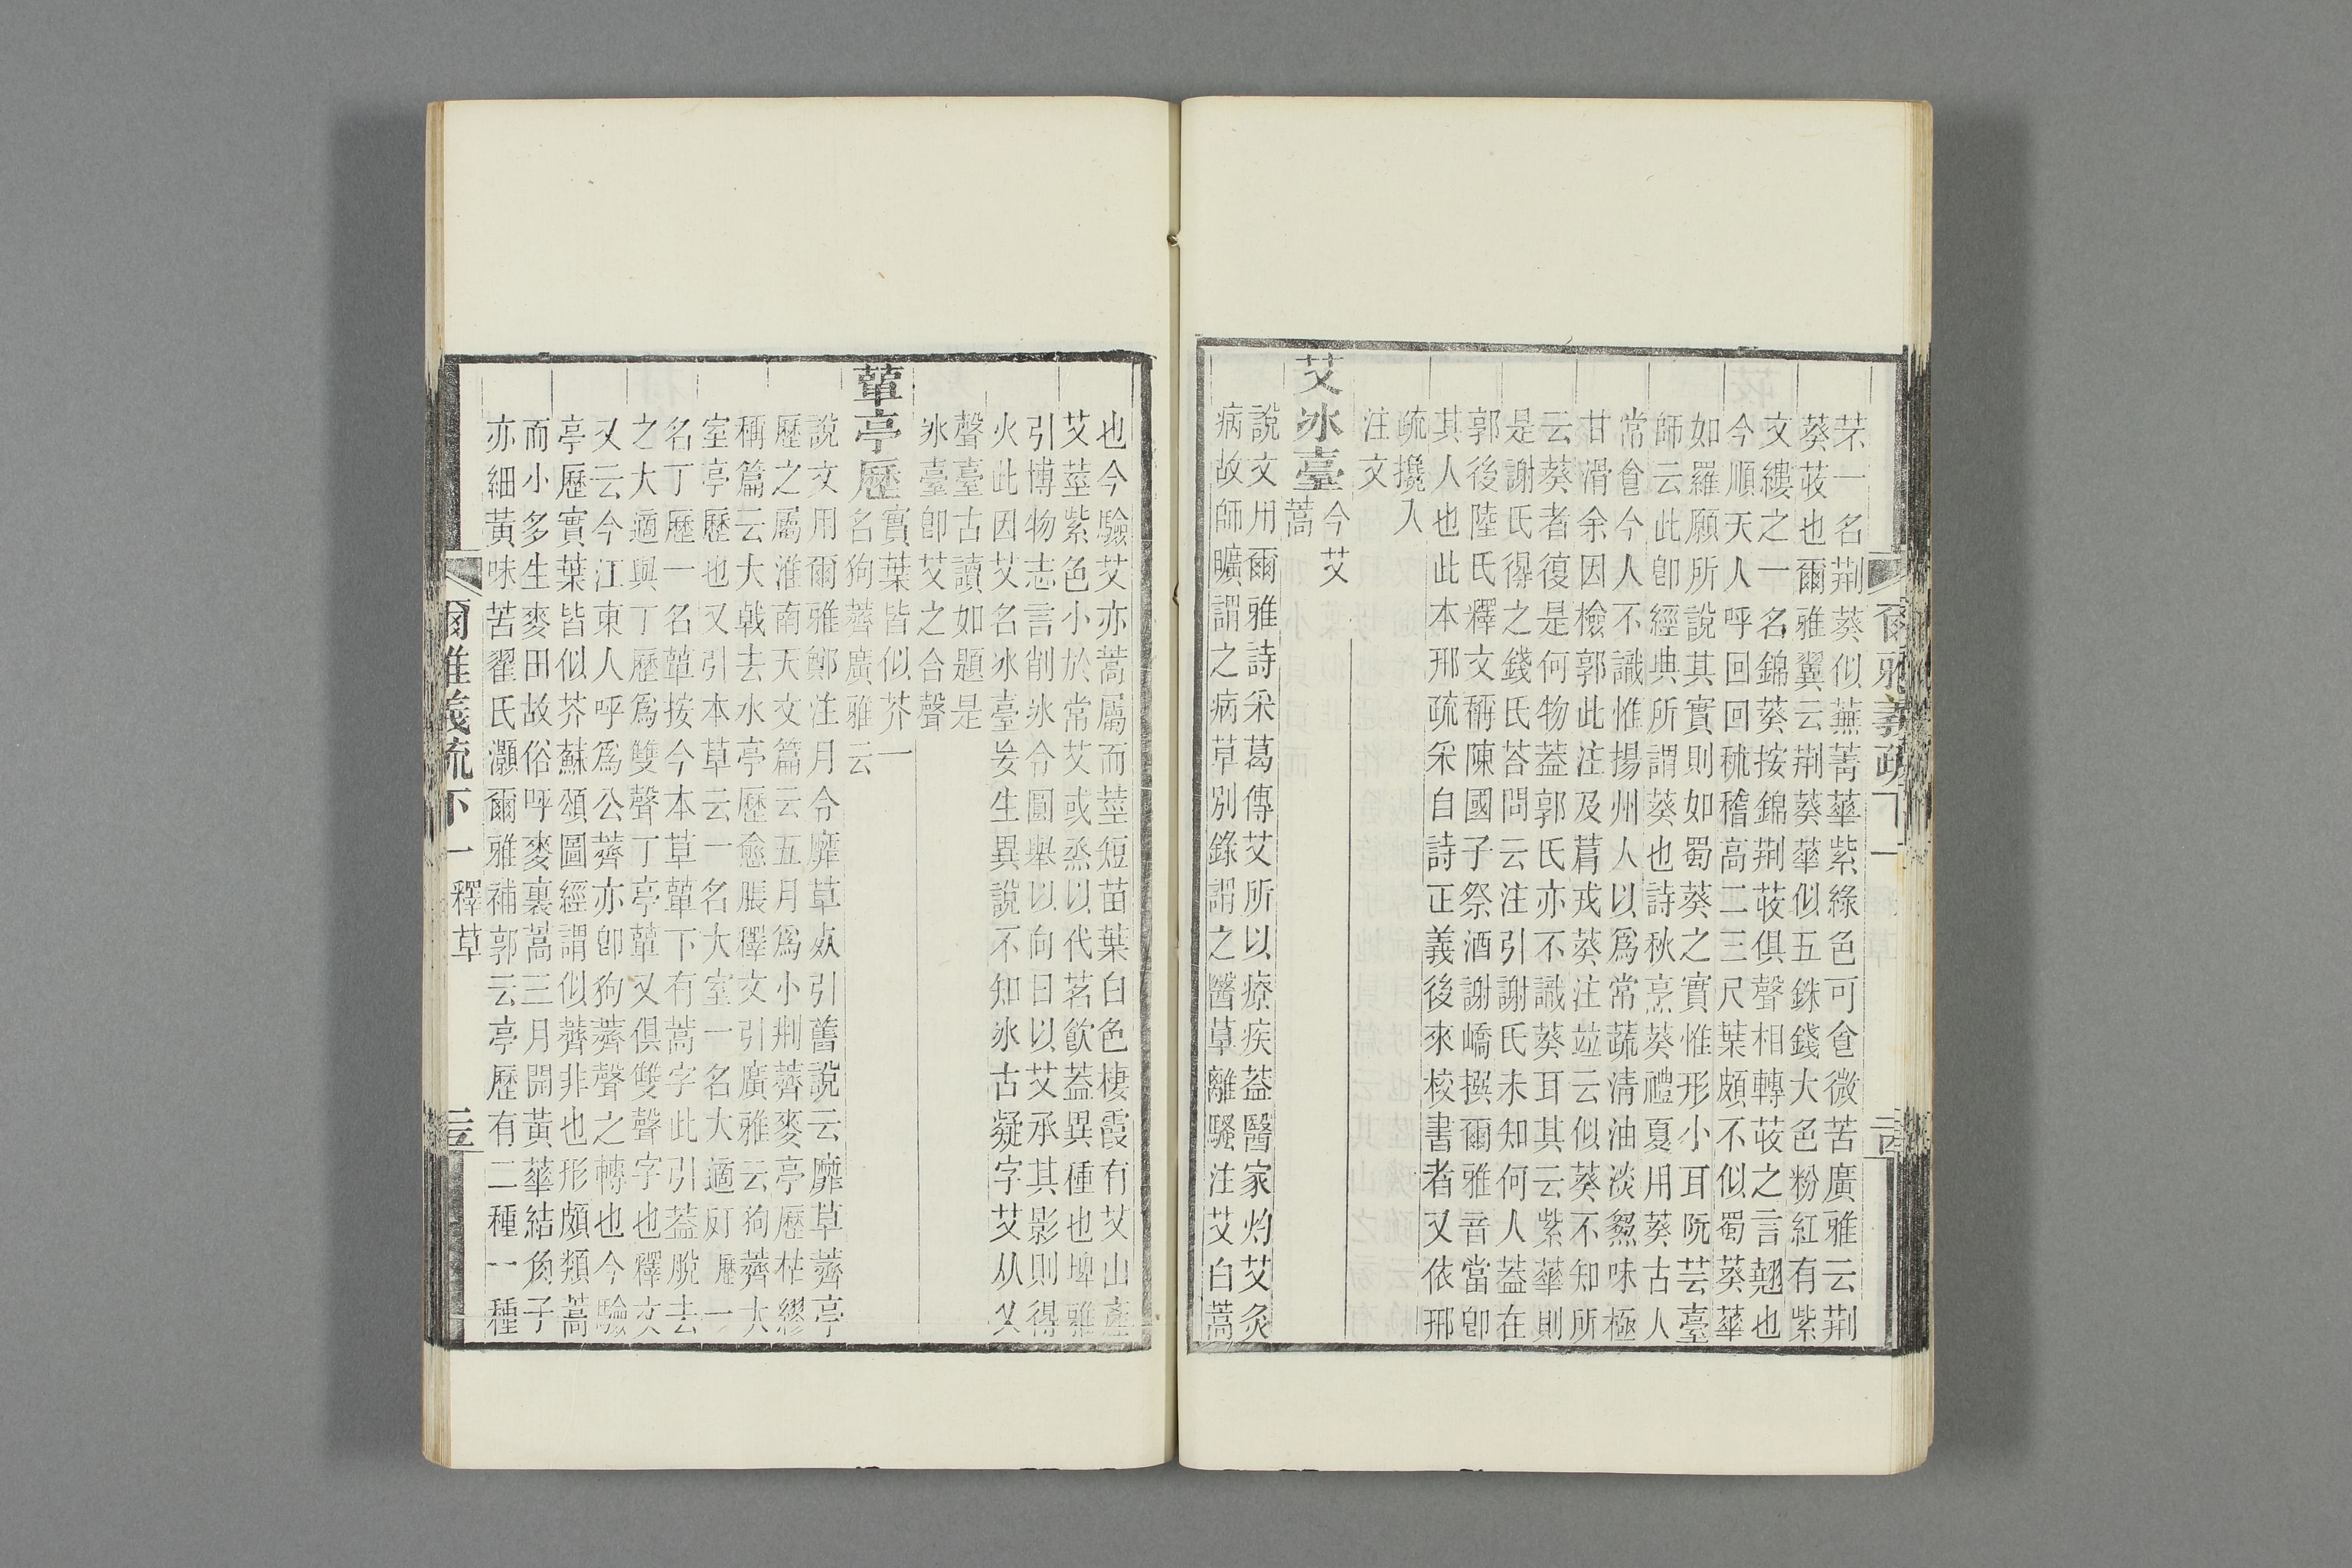 爾雅義疏下一
芣一名荆葵似蕪菁華紫綠色可食微苦廣雅云荆
葵荍也爾雅翼云荆葵華似五銖錢大色粉紅有紫
文縷之一名錦葵按錦荆荍俱聲相轉荍之言翹也
今順天人呼回回秫稽高二三尺葉頗不似蜀葵華
如羅願所說其實則如蜀葵之實惟形小耳阮芸臺
師云此卽經典所謂葵也詩秋烹葵禮夏用葵古人
常食今人不識惟揚州人以爲常蔬清油淡煑味極
甘滑余因檢郭此注及菺戎葵注竝云似葵不知所
云葵者復是何物蓋郭氏亦不識葵耳其云紫華則
是謝氏得之錢氏荅問云注引謝氏未知何人蓋在
郭後陸氏釋文稱陳國子祭酒謝嶠撰爾雅音當卽
其人也此本邢疏采自詩正義後來校書者又依邢
疏攙入
注文
艾冰臺今艾
蒿
說文用爾雅詩采葛傳艾所以療疾蓋醫家灼艾灸
病故師曠謂之病草別錄謂之醫草離騷注艾白蒿
也今驗艾亦蒿屬而莖短苗葉白色棲霞有艾山產
艾莖紫色小於常艾或烝以代茗飲蓋異種也埤雅
引博物志言削冰令圓舉以向日以艾承其影則得
火此因艾名冰臺妄生異說不知冰古凝字艾从乂
聲臺古讀如題是
冰臺卽艾之合聲
蕇亭歷實葉皆似芥一
名狗薺廣雅云
說文用爾雅鄭注月令靡草㡿引舊說云靡草薺亭
歷之屬淮南天文篇云五月爲小刑薺麥亭歷枯繆
稱篇云大戟去水亭歷愈脹釋文引廣雅云狗薺大
室亭歷也又引本草云一名大室一名大適㡿歷一
名丁歷一名蕇按今本草蕇下有蒿字此引蓋脫去
之大適與丁歷爲雙聲丁亭蕇又俱雙聲字也釋文
又云今江東人呼爲公薺亦卽狗薺聲之轉也今驗
亭歷實葉皆似芥蘇頌圖經謂似薺非也形頗類蒿
而小多生麥田故俗呼麥裏蒿三月開黃華結角子
亦細黃味苦翟氏灝爾雅補郭云亭歷有二種一種
爾雅義疏下一釋草